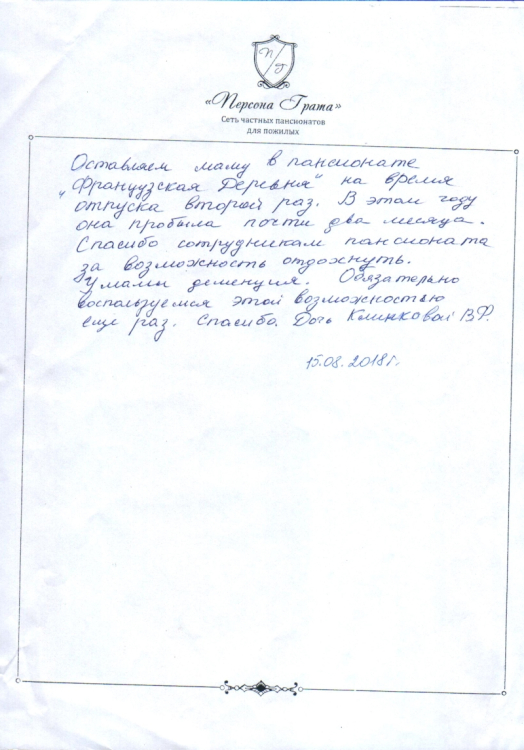 П/Г
«Персона Грата»
Сеть частных пансионатов
для пожилых
Оставляем маму в пансионате
„Французская Деревня" на время
отпуска второй раз. В этом году
она пробыла почти два месяца.
Спасибо сотрудникам пансионата
за возможность отдохнуть.
У мамы деменция. Обязательно
воспользуемся этой возможностью
еще раз. Спасибо. Дочь Клинковой В.Ф.
15.08.2018г.